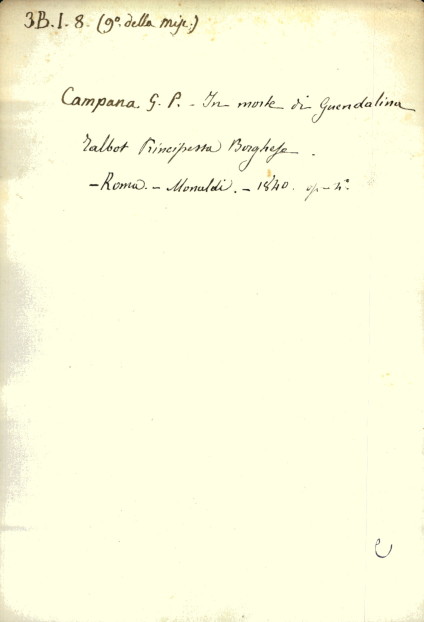 3B.I.8. (9º della misc.)
Campana G. P. - In morte di Guendalina
Talbot Principessa Borghese.
- Roma. - Monaldi. - 1840. op - 4º.